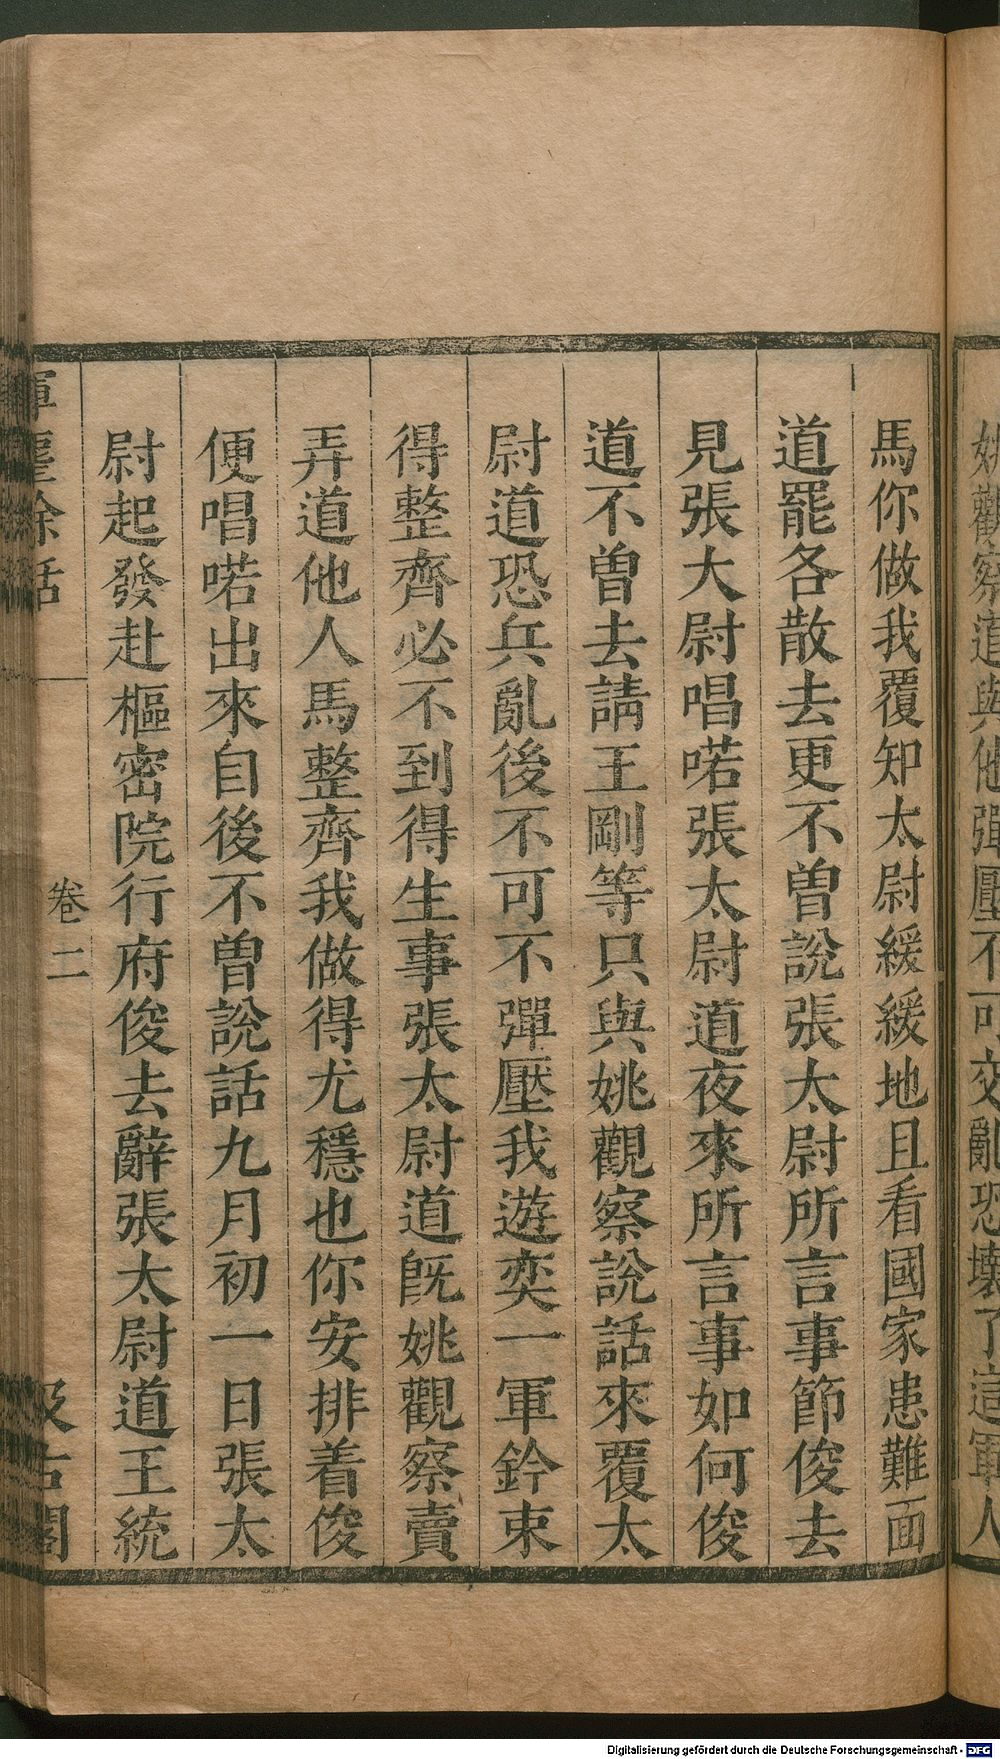 姚觀察道與他彈壓不可交亂恐壞了這軍人
馬你做我覆知太尉緩緩地且看國家患難面
道罷各散去更不曽說張太尉所言事節俊去
見張大尉唱喏張太尉道夜來所言事如何俊
道不曽去請王剛等只與姚觀察說話來覆太
尉道恐兵亂後不可不彈壓我遊奕一軍鈐束
得整齊必不到得生事張太尉道旣姚觀察賣
弄道他人馬整齊我做得尤穩也你安排着俊
便唱喏出來自後不曽說話九月初一日張太
尉起發赴樞密院行府俊去辭張太尉道王統
揮麈餘話
卷二
汲古閣
Digitalisierung gefördert durch die Deutsche Forschungsgemeinschaft - DFG